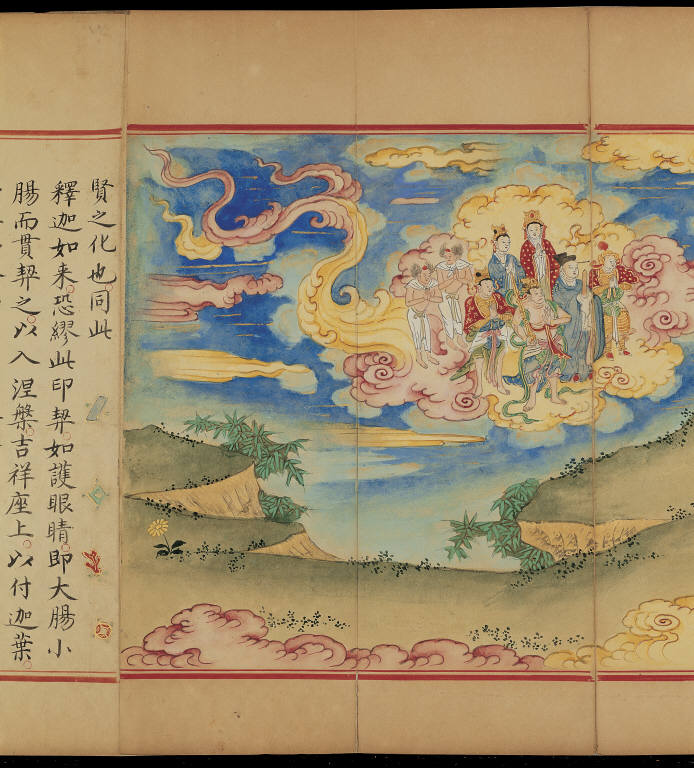 賢之化也同此
釋迦如来恐繆此印契如護眼睛即大腸小
腸而貫契之以入涅槃吉祥座上以付迦葉